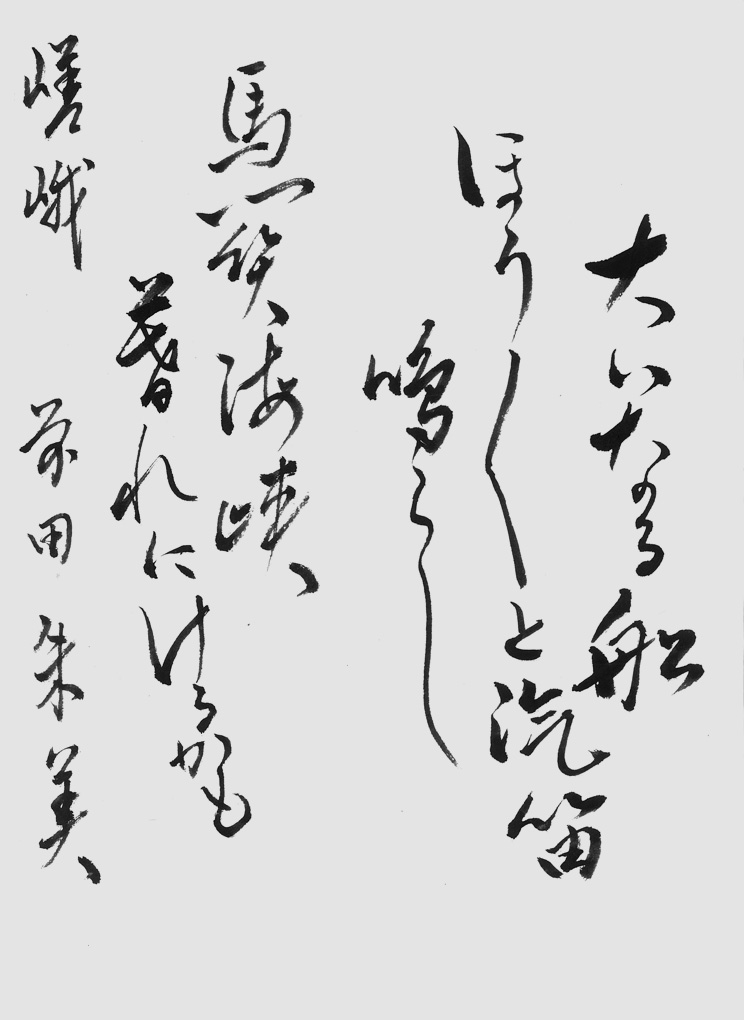 大いなる船
ほう〱と汽笛
鳴らし
馬関海峡
暮れにけるかも
嵯峨 前田朱美